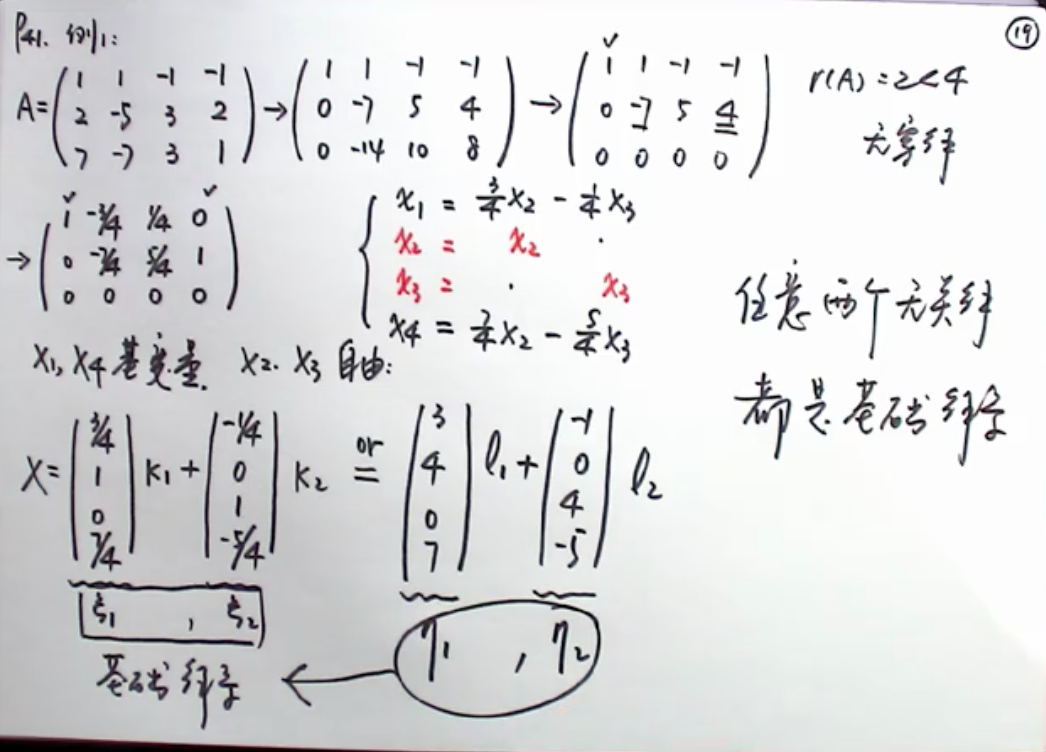 P41. 例1:
⑲
A = ( 1 1 -1 -1 ; 2 -5 3 2 ; 7 -7 3 1 ) → ( 1 1 -1 -1 ; 0 -7 5 4 ; 0 -14 10 8 ) → ( 1 1 -1 -1 ; 0 -7 5 4 ; 0 0 0 0 )
r(A) = 2 < 4
无穷解
→ ( 1 -3/4 1/4 0 ; 0 -7/4 5/4 1 ; 0 0 0 0 )
x1 = 3/4 x2 - 1/4 x3
x2 = x2 ·
x3 = · x3
x4 = 7/4 x2 - 5/4 x3
任意两个无关解
都是基础解系
x1, x4 基变量. x2. x3 自由:
X = ( 3/4 1 0 7/4 ) k1 + ( -1/4 0 1 -5/4 ) k2 or = ( 3 4 0 7 ) l1 + ( -1 0 4 -5 ) l2
ξ1 , ξ2
η1 , η2
基础解系 ←